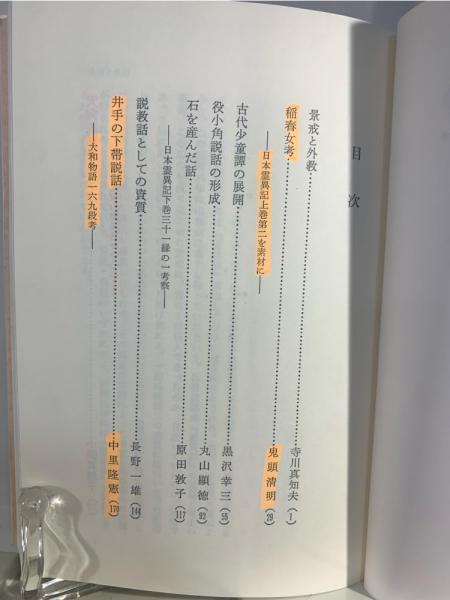 目次
景戒と外教……寺川真知夫(1)
稲舂女考……鬼頭清明(29)
――日本霊異記上巻第二を素材に――
古代少童譚の展開……黒沢幸三(55)
役小角説話の形成……丸山顕徳(92)
石を産んだ話……原田敦子(117)
――日本霊異記下巻三十一縁の一考察――
説教話としての資質……長野一雄(144)
井手の下帯説話……中里隆憲(170)
――大和物語一六九段考――